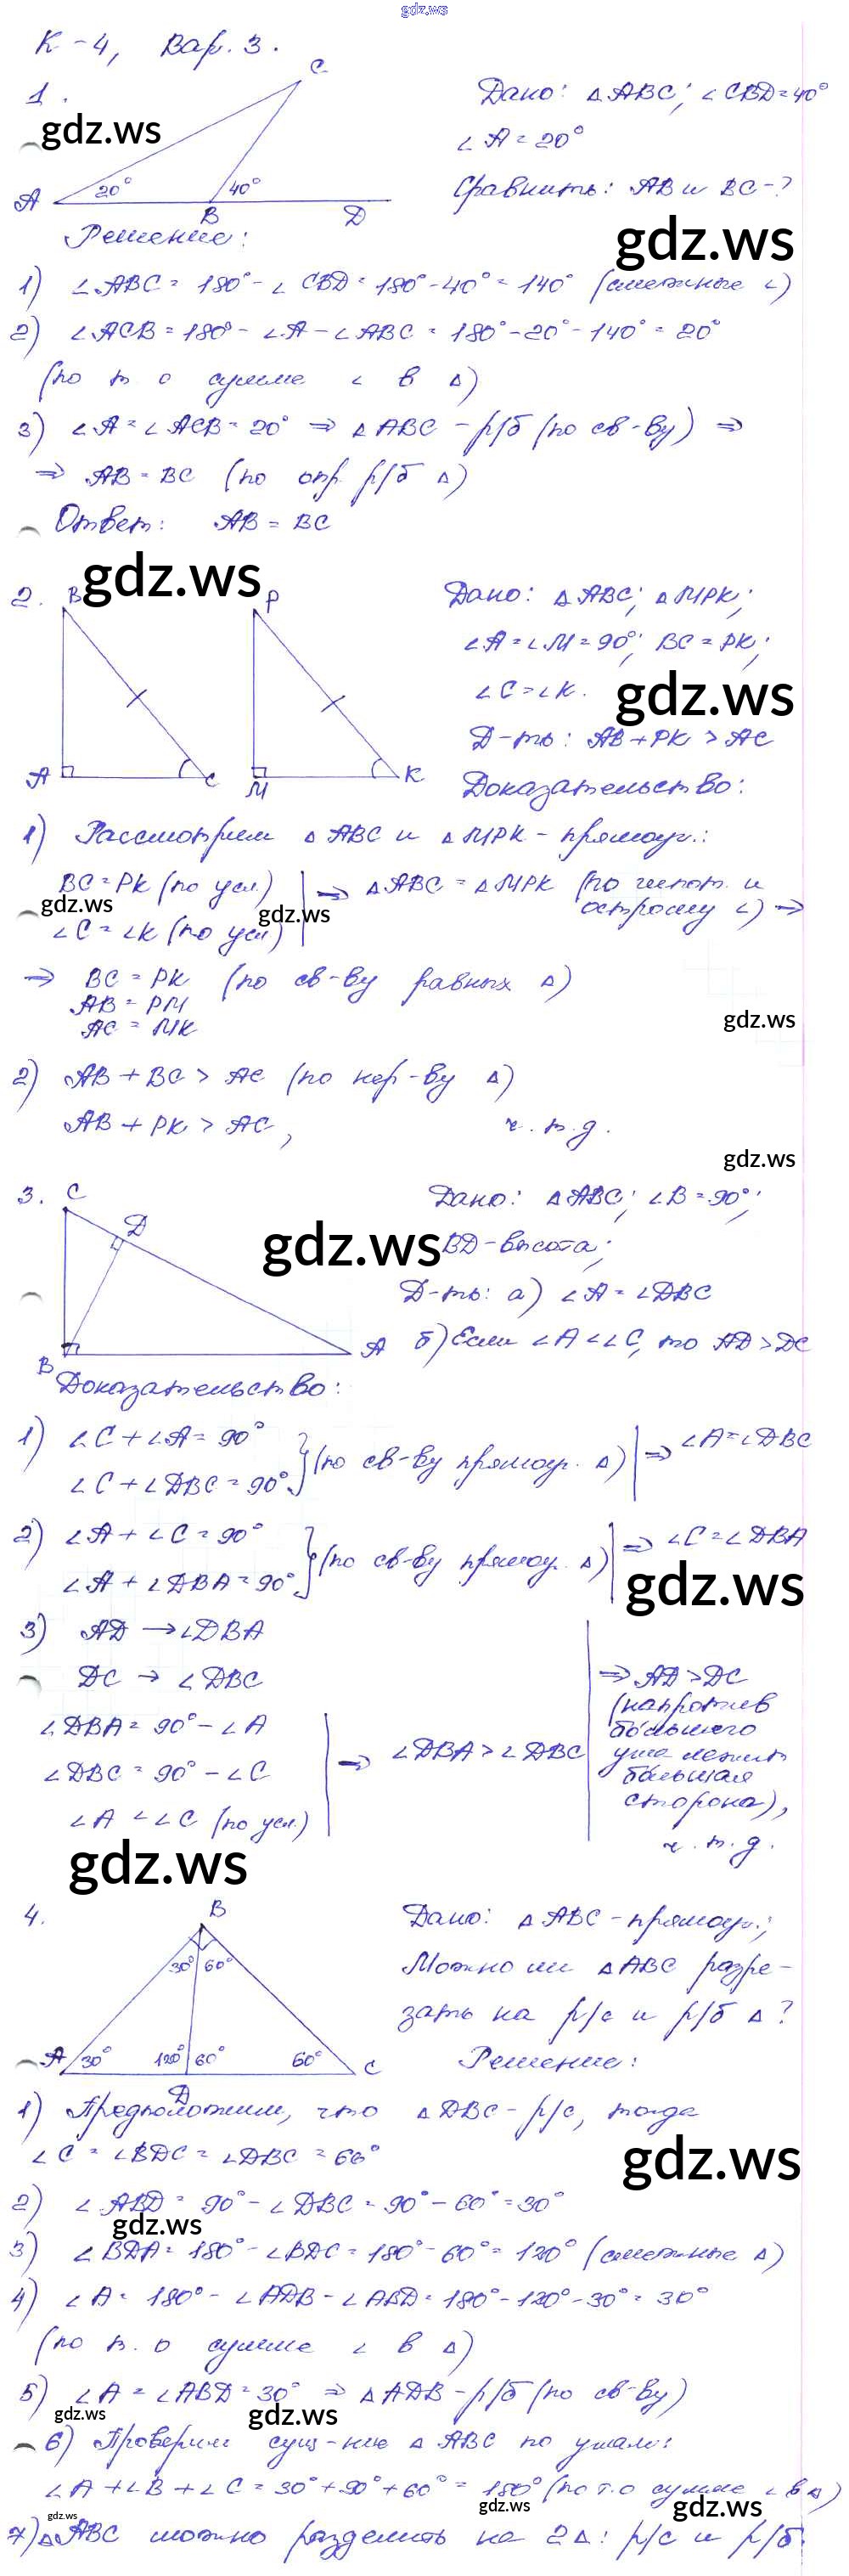 gdz.ws
К-4, Вар. 3.
1.
C
A
20°
40°
B
D
Дано: △ABC; ∠CBD=40°
∠A=20°
Сравнить: AB и BC-?
gdz.ws
gdz.ws
Решение:
1) ∠ABC = 180° - ∠CBD = 180° - 40° = 140° (смежные ∠)
2) ∠ACB = 180° - ∠A - ∠ABC = 180° - 20° - 140° = 20°
(по т о сумме ∠ в △)
3) ∠A = ∠ACB = 20° ⇒ △ABC - р/б (по св-ву) ⇒
⇒ AB = BC (по опр. р/б △)
Ответ: AB = BC
gdz.ws
2.
B
A
C
P
M
K
Дано: △ABC; △MPK;
∠A = ∠M = 90°; BC = PK;
∠C = ∠K.
gdz.ws
Д-ть: AB + PK > AC
Доказательство:
1) Рассмотрим △ABC и △MPK - прямоуг.:
BC = PK (по усл.)
∠C = ∠K (по усл)
⇒ △ABC = △MPK (по гипот. и
острому ∠) ⇒
gdz.ws
gdz.ws
⇒ BC = PK (по св-ву равных △)
AB = PM
AC = MK
gdz.ws
2) AB + BC > AC (по нер-ву △)
AB + PK > AC, ч.т.д.
gdz.ws
3.
C
D
B
A
gdz.ws
Дано: △ABC; ∠B = 90°;
BD - высота;
Д-ть: а) ∠A = ∠DBC
б) Если ∠A < ∠C, то AD > DC
Доказательство:
1) ∠C + ∠A = 90°
∠C + ∠DBC = 90°
} (по св-ву прямоуг. △) | ⇒ ∠A = ∠DBC
2) ∠A + ∠C = 90°
∠A + ∠DBA = 90°
} (по св-ву прямоуг. △) | ⇒ ∠C = ∠DBA
gdz.ws
3) AD → ∠DBA
DC → ∠DBC
∠DBA = 90° - ∠A
∠DBC = 90° - ∠C
∠A < ∠C (по усл.)
⇒ ∠DBA > ∠DBC
⇒ AD > DC
(напротив
большего
угла лежит
большая
сторона),
ч.т.д.
gdz.ws
4.
B
30° 60°
A 30° 120° 60° 60° C
D
Дано: △ABC - прямоуг.;
Можно ли △ABC разре-
зать на р/с и р/б △?
Решение:
1) Предположим, что △DBC - р/с, тогда
∠C = ∠BDC = ∠DBC = 60°
gdz.ws
2) ∠ABD = 90° - ∠DBC = 90° - 60° = 30°
gdz.ws
3) ∠BDA = 180° - ∠BDC = 180° - 60° = 120° (смежные △)
4) ∠A = 180° - ∠ADB - ∠ABD = 180° - 120° - 30° = 30°
(по т. о сумме ∠ в △)
5) ∠A = ∠ABD = 30° ⇒ △ADB - р/б (по св-ву)
gdz.ws
gdz.ws
6) Проверим сущ-ние △ABC по углам:
∠A + ∠B + ∠C = 30° + 90° + 60° = 180° (по т.о сумме ∠ в △)
gdz.ws
gdz.ws
gdz.ws
7) △ABC можно разделить на 2△: р/с и р/б.